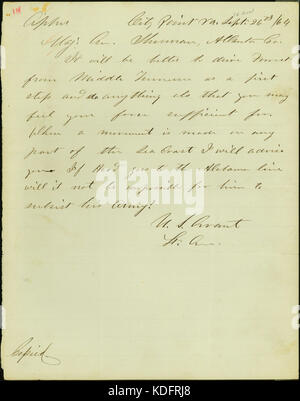 Cipher City Point Va. Sept. 26th /64
Maj. Gen. Sherman, Atlanta Ga.
It will be better to drive Forrest
from Middle Tennessee as a first
step and do anything else that you may
feel your force sufficient for.
When a movement is made on any
part of the Sea Coast I will advise
you. If Hood goes to the Alabama line
will it not be impossible for him to
subsist his Army?
U. S. Grant
Lt. Gen.
Copied
alamy
Image ID: KDFRJ8
www.alamy.com